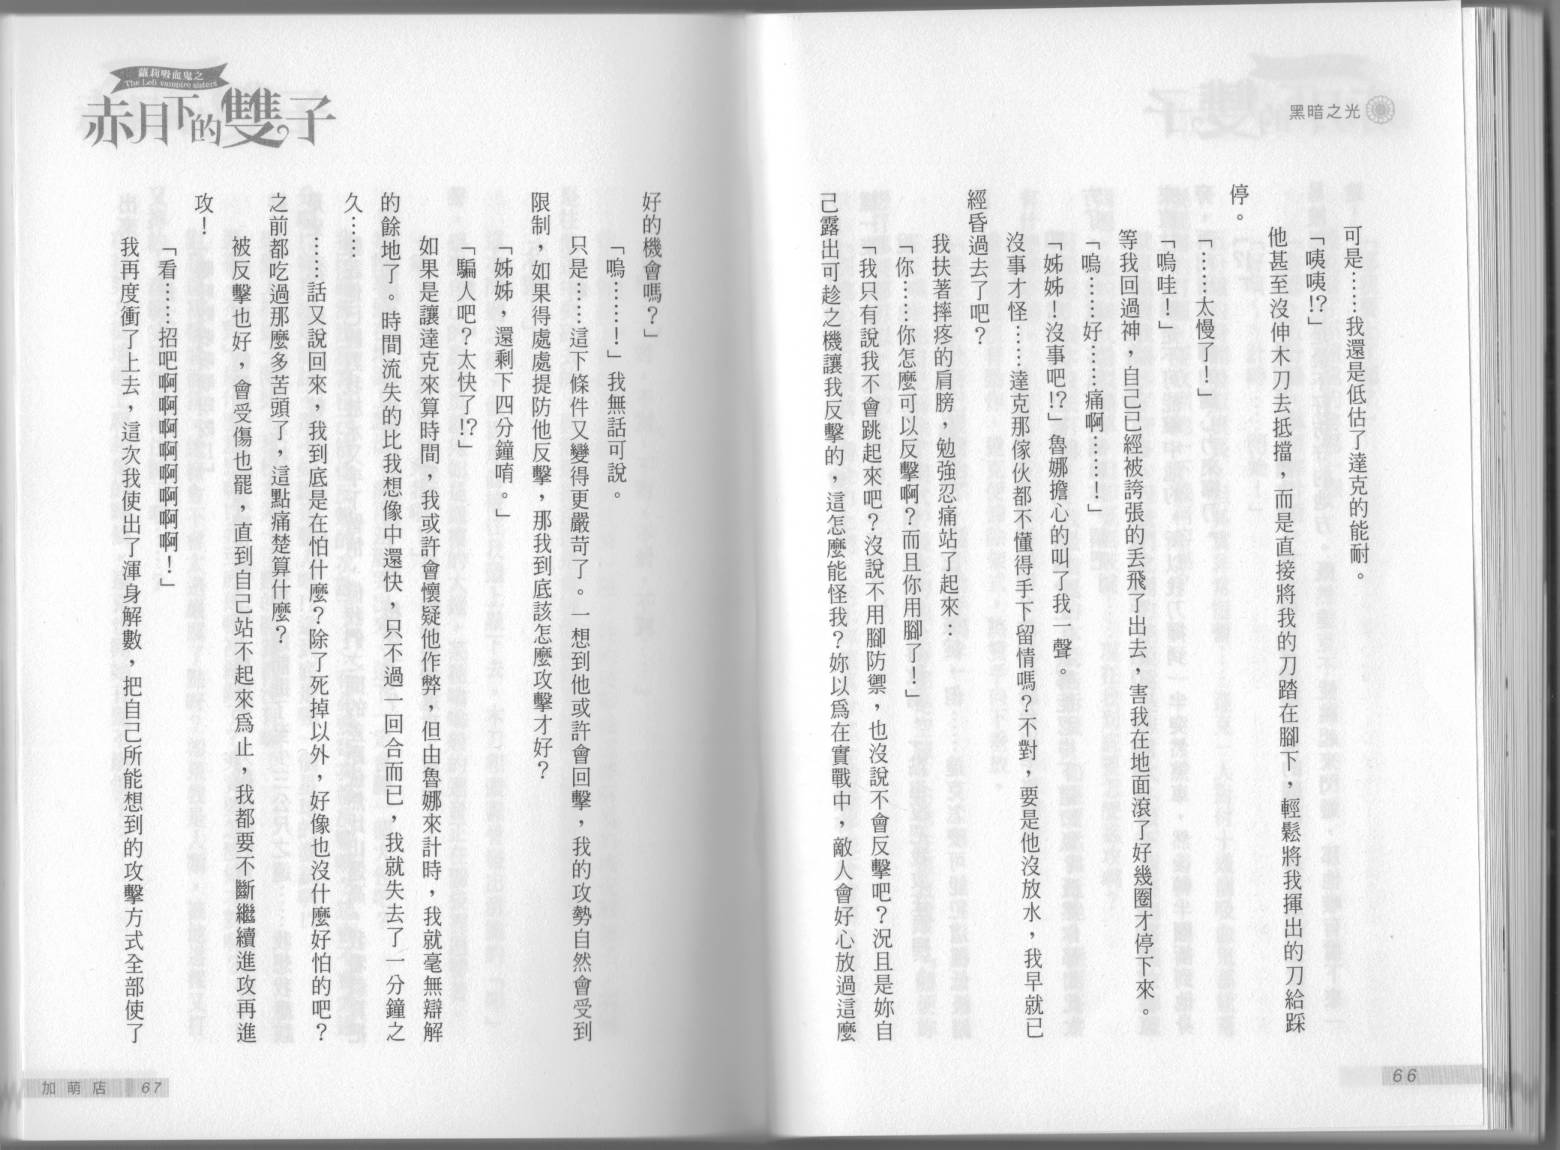 黑暗之光
可是……我還是低估了達克的能耐。
「咦咦!?」
他甚至沒伸木刀去抵擋，而是直接將我的刀踏在腳下，輕鬆將我揮出的刀給踩
停。
「……太慢了！」
「嗚哇！」
等我回過神，自己已經被誇張的丟飛了出去，害我在地面滾了好幾圈才停下來。
「嗚……好……痛啊……！」
「姊姊！沒事吧!?」魯娜擔心的叫了我一聲。
沒事才怪……達克那傢伙都不懂得手下留情嗎？不對，要是他沒放水，我早就已
經昏過去了吧？
我扶著摔疼的肩膀，勉強忍痛站了起來：
「你……你怎麼可以反擊啊？而且你用腳了！」
「我只有說我不會跳起來吧？沒說不用腳防禦，也沒說不會反擊吧？況且是妳自
己露出可趁之機讓我反擊的，這怎麼能怪我？妳以為在實戰中，敵人會好心放過這麼
66
蘿莉吸血鬼之
The Loli vampire sisters
赤月下的雙子
好的機會嗎？」
「嗚……！」我無話可說。
只是……這下條件又變得更嚴苛了。一想到他或許會回擊，我的攻勢自然會受到
限制，如果得處處提防他反擊，那我到底該怎麼攻擊才好？
「姊姊，還剩下四分鐘唷。」
「騙人吧？太快了!?」
如果是讓達克來算時間，我或許會懷疑他作弊，但由魯娜來計時，我就毫無辯解
的餘地了。時間流失的比我想像中還快，只不過一回合而已，我就失去了一分鐘之
久……
……話又說回來，我到底是在怕什麼？除了死掉以外，好像也沒什麼好怕的吧？
之前都吃過那麼多苦頭了，這點痛楚算什麼？
被反擊也好，會受傷也罷，直到自己站不起來為止，我都要不斷繼續進攻再進
攻！
「看……招吧啊啊啊啊啊啊啊啊！」
我再度衝了上去，這次我使出了渾身解數，把自己所能想到的攻擊方式全部使了
加萌店 67